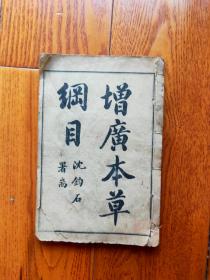 增廣本草
綱目
沈鈞石
署耑